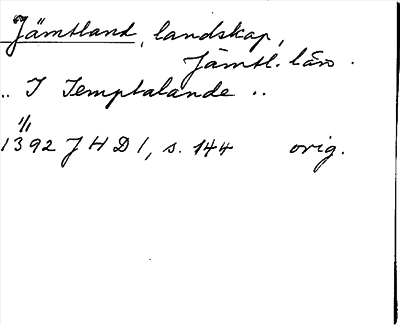 Jämtland, landskap,
Jämtl. län.
.. I Jemptalande ..
1/1
1392 J H D 1, s. 144 orig.